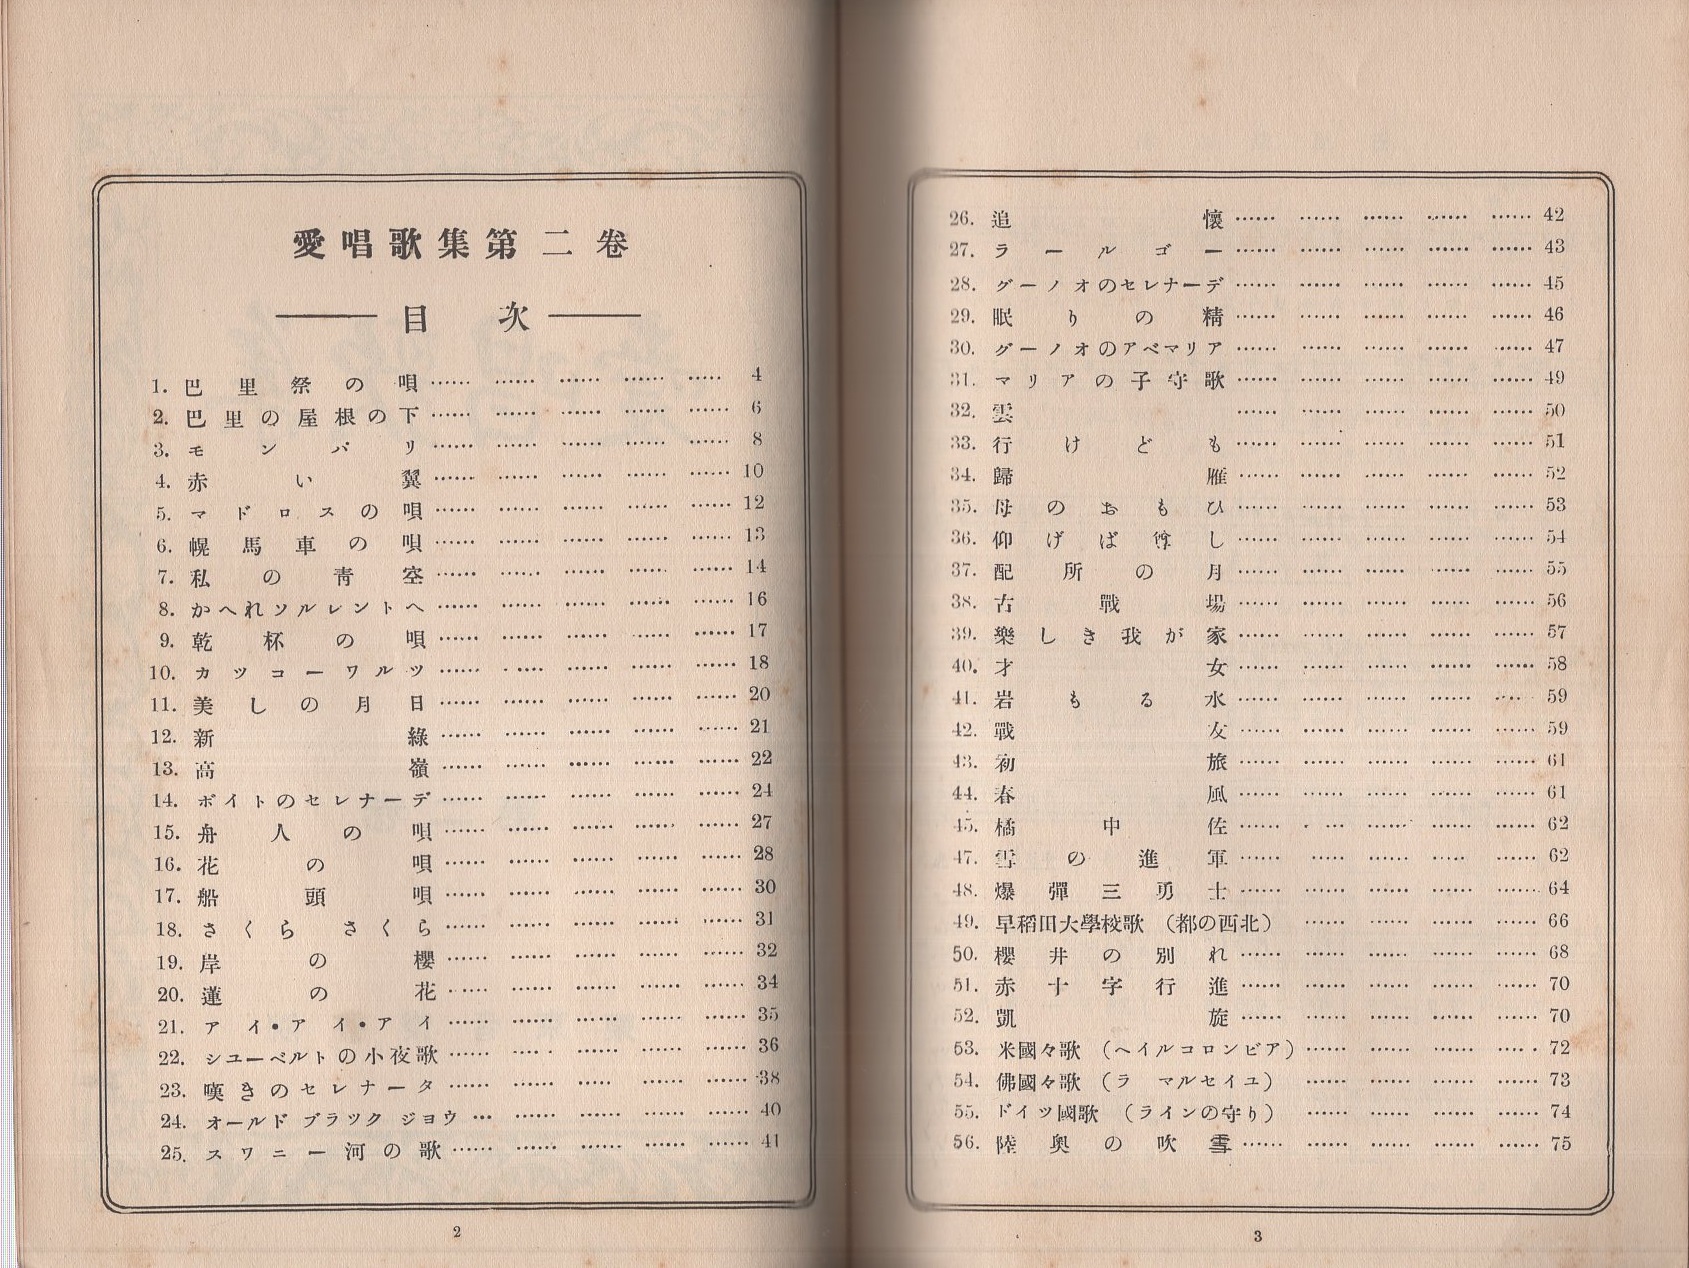 愛唱歌集第二卷
目次
1. 巴里祭の唄 …… …… …… …… …… 4
2. 巴里の屋根の下 …… …… …… …… …… 6
3. モンパリ …… …… …… …… …… 8
4. 赤い翼 …… …… …… …… …… 10
5. マドロスの唄 …… …… …… …… …… 12
6. 幌馬車の唄 …… …… …… …… …… 13
7. 私の靑空 …… …… …… …… …… 14
8. かへれソルレントへ …… …… …… …… …… 16
9. 乾杯の唄 …… …… …… …… …… 17
10. カツコーワルツ …… …… …… …… …… 18
11. 美しの月日 …… …… …… …… …… 20
12. 新綠 …… …… …… …… …… 21
13. 高嶺 …… …… …… …… …… 22
14. ボイトのセレナーデ …… …… …… …… …… 24
15. 舟人の唄 …… …… …… …… …… 27
16. 花の唄 …… …… …… …… …… 28
17. 船頭唄 …… …… …… …… …… 30
18. さくら さくら …… …… …… …… …… 31
19. 岸の櫻 …… …… …… …… …… 32
20. 蓮の花 …… …… …… …… …… 34
21. アイ・アイ・アイ …… …… …… …… …… 35
22. シユーベルトの小夜歌 …… …… …… …… …… 36
23. 嘆きのセレナータ …… …… …… …… …… 38
24. オールド ブラツク ジヨウ … …… …… …… …… 40
25. スワニー河の歌 …… …… …… …… …… 41
2
26. 追懷 …… …… …… …… …… 42
27. ラールゴー …… …… …… …… …… 43
28. グーノオのセレナーデ …… …… …… …… …… 45
29. 眠りの精 …… …… …… …… …… 46
30. グーノオのアベマリア …… …… …… …… …… 47
31. マリアの子守歌 …… …… …… …… …… 49
32. 雲 …… …… …… …… …… 50
33. 行けども …… …… …… …… …… 51
34. 歸雁 …… …… …… …… …… 52
35. 母のおもひ …… …… …… …… …… 53
36. 仰げば尊し …… …… …… …… …… 54
37. 配所の月 …… …… …… …… …… 55
38. 古戰場 …… …… …… …… …… 56
39. 樂しき我が家 …… …… …… …… …… 57
40. 才女 …… …… …… …… …… 58
41. 岩もる水 …… …… …… …… …… 59
42. 戰友 …… …… …… …… …… 59
43. 初旅 …… …… …… …… …… 61
44. 春風 …… …… …… …… …… 61
45. 橘中佐 …… …… …… …… …… 62
47. 雪の進軍 …… …… …… …… …… 62
48. 爆彈三勇士 …… …… …… …… …… 64
49. 早稻田大學校歌（都の西北） …… …… …… …… 66
50. 櫻井の別れ …… …… …… …… …… 68
51. 赤十字行進 …… …… …… …… …… 70
52. 凱旋 …… …… …… …… …… 70
53. 米國々歌（ヘイルコロンビア） …… …… …… …… …… 72
54. 佛國々歌（ラ マルセイユ） …… …… …… …… 73
55. ドイツ國歌（ラインの守り） …… …… …… …… 74
56. 陸奧の吹雪 …… …… …… …… …… 75
3